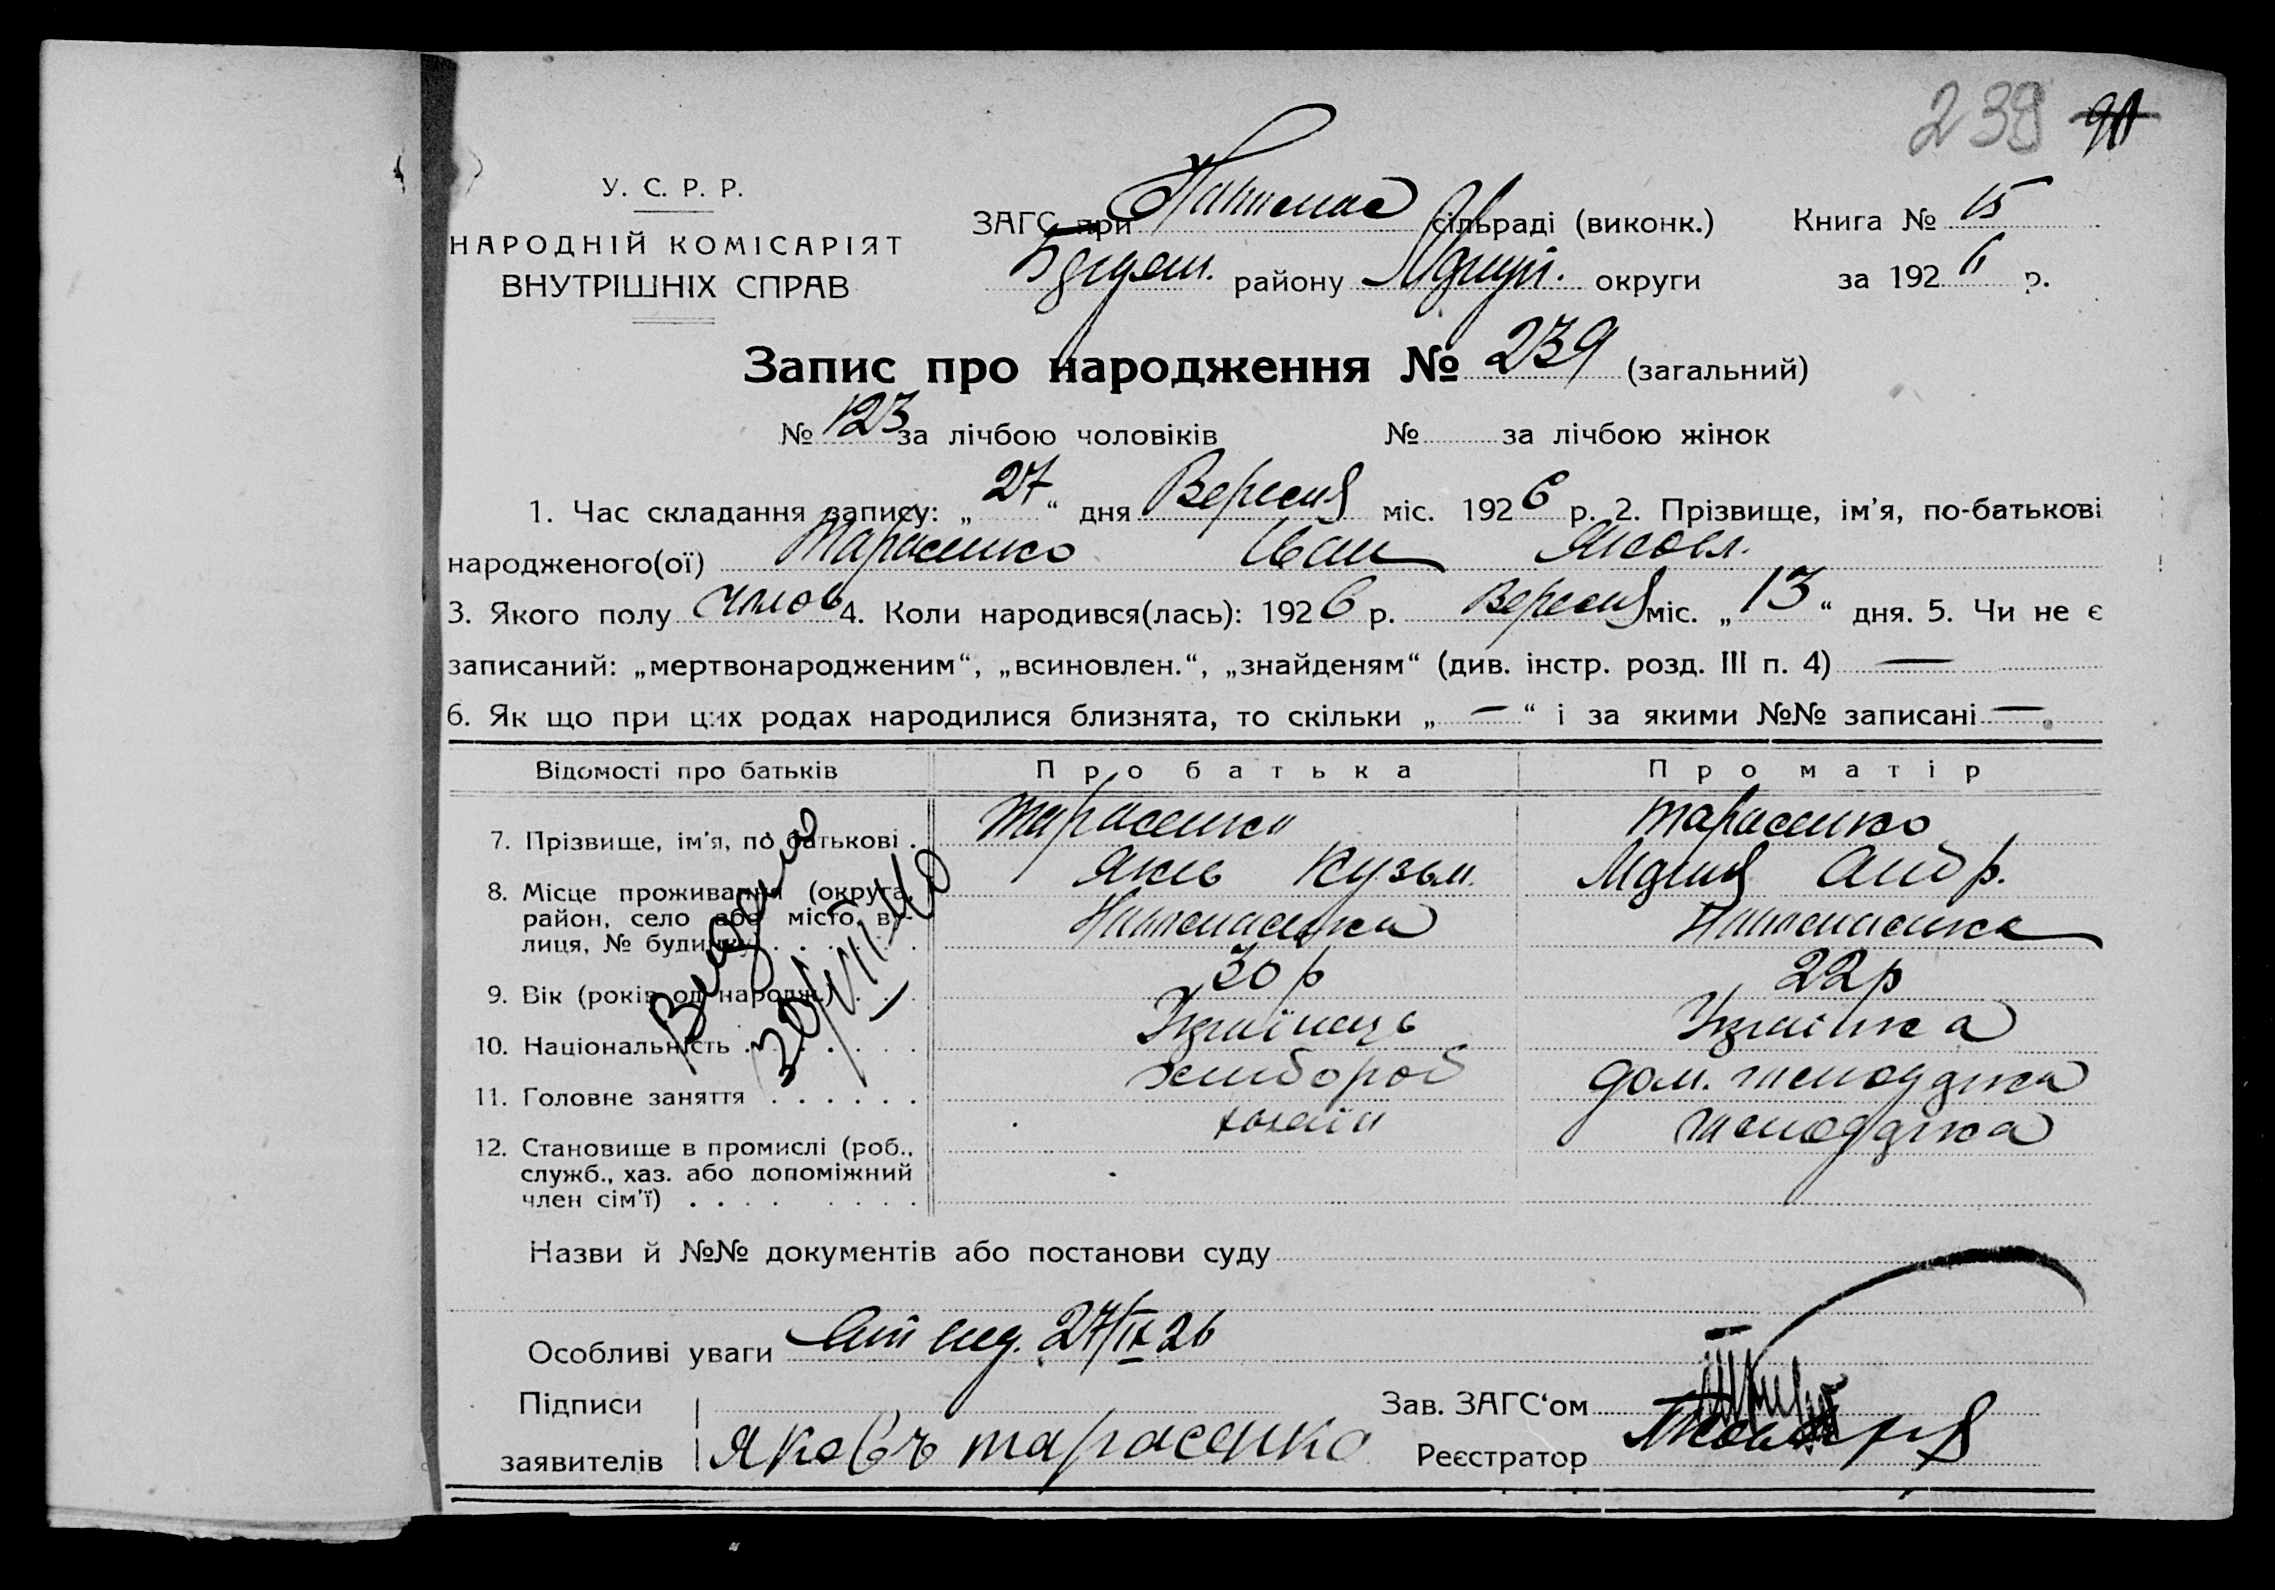 239
У. С. Р. Р.
НАРОДНІЙ КОМІСАРІЯТ
ВНУТРІШНІХ СПРАВ
ЗАГС при сільраді (виконк.) Книга № 15
району округи за 1926 р.
Запис про народження № 239 (загальний)
№ 123 за лічбою чоловіків № за лічбою жінок
1. Час складання запису: „27“ дня Вересня міс. 1926 р. 2. Прізвище, ім'я, по-батькові
народженого(ої) Тарасенко Іван Яковл.
3. Якого полу чолов 4. Коли народився(лась): 1926 р. Вересня міс. „13“ дня. 5. Чи не є
записаний: „мертвонародженим“, „всиновлен.“, „знайденям“ (див. інстр. розд. III п. 4) —
6. Як що при цих родах народилися близнята, то скільки „—“ і за якими №№ записані —
Відомості про батьків Про батька Про матір
7. Прізвище, ім'я, по батькові . Тарасенко Тарасенко
Яків Кузьм. Андр.
8. Місце проживання (округа,
район, село або місто, ву-
лиця, № будинку) . . . . .
9. Вік (років од народж.) . . . 30 р 22 р
10. Національність . . . . . . . Українець Українка
11. Головне заняття . . . . . . хлібороб дом.
12. Становище в промислі (роб.,
служб., хаз. або допоміжний
член сім'ї) . . . . . . . . хазяїн
Видано
30/VIII 40
Назви й №№ документів або постанови суду
Особливі уваги 27/IX 26
Підписи
заявителів Яковъ тарасенко
Зав. ЗАГС‘ом
Реєстратор